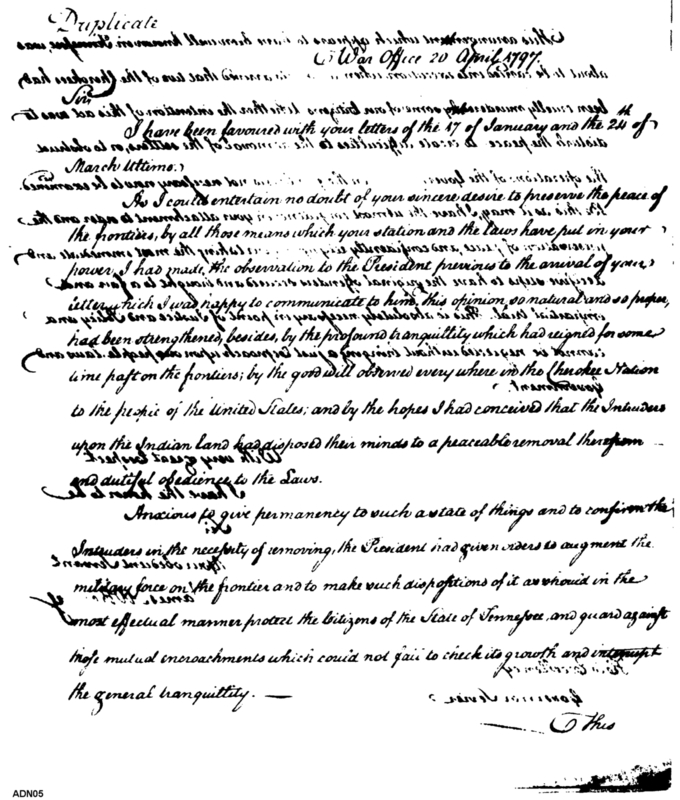 Duplicate
War Office 20 April 1797.
Sir
I have been favoured with your letters of the 17 of January and the 24th of
March Ultimo.
As I could entertain no doubt of your sincere desire to preserve the peace of
the frontiers, by all those means which your station and the laws have put in your
power, I had made, the observation to the President previous to the arrival of your
letter which I was happy to communicate to him, this opinion, so natural and so proper,
had been strengthened, besides, by the profound tranquillity which had reigned for some
time past on the frontiers; by the good will observed every where in the Cherokee Nation
to the people of the United States; and by the hopes I had conceived that the Intruders
upon the Indian land had disposed their minds to a peaceable removal therefrom
and dutiful obedience to the Laws.
Anxious to give permanency to such a state of things and to confirm the
Intruders in the necessity of removing, the President had given orders to augment the
military force on the frontier and to make such dispositions of it as should in the
most effectual manner protect the Citizens of the State of Tennessee, and guard against
those mutual encroachments which could not fail to check its growth and interrupt
the general tranquillity. —
This
ADN05